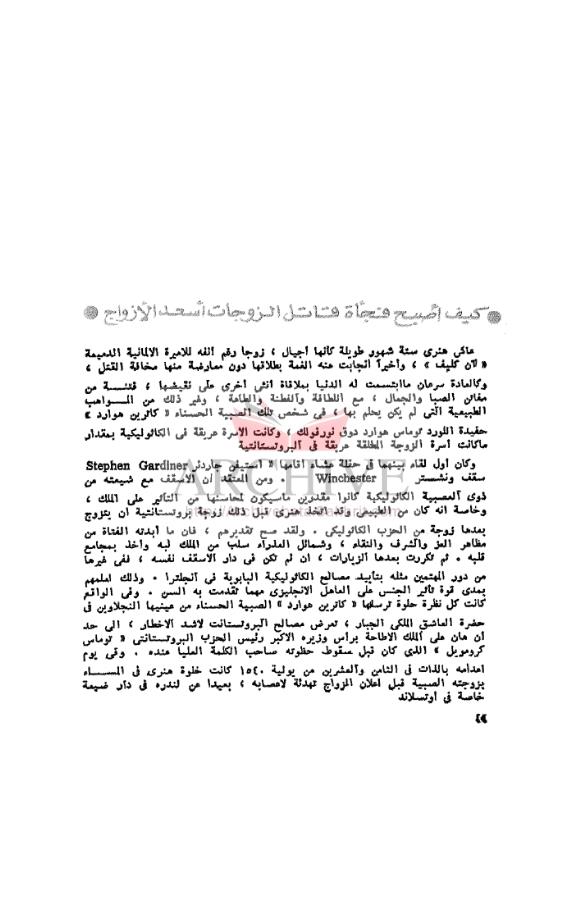 كيف أصبح فجأة قاتل الزوجات أسعد الأزواج
عاش هنرى ستة شهور طويلة كأنها أجيال ، زوجا رقم أنفه للاميرة الالمانية الدميمة
« لآن كليف » ، وأخيرا انجابت عنه الغمة بطلاقها دون معارضة منها مخافة القتل ،
وكالعادة سرعان ماابتسمت له الدنيا بملاقاة انثى أخرى على نقيضها ، قديسة من
مفاتن الصبا والجمال ، مع اللطافة والفطنة والطاعة ، وغير ذلك من المــواهب
الطبيعية التى لم يكن يحلم بها ، فى شخص تلك الصبية الحسناء « كاترين هوارد »
حفيدة اللورد توماس هوارد دوق نورفولك ، وكانت الاسرة عريقة فى الكاثوليكية بمقدار
ماكانت أسرة الزوجة المطلقة عريقة فى البروتستانتية
وكان أول لقاء بينهما فى حفلة عشاء أقامها « استيفن جاردنر Stephen Gardiner
سقف ونشستر Winchester » . ومن المعتقد ان الاسقف مع شيعته من
ذوى العصبية الكاثوليكية كانوا مقدرين ماسيكون لمحاسنها من التأثير على الملك ،
وخاصة انه كان من الطبيعى وقد اتخذ هنرى قبل ذلك زوجة بروتستانتية أن يتزوج
بعدها زوجة من الحزب الكاثوليكى . ولقد صح تقديرهم ، فان ما أبدته الفتاة من
مظاهر العز والشرف والنقاء ، وشمائل العذراء سلب من الملك لبه وأخذ بمجامع
قلبه . ثم تكررت بعدها الزيارات ، ان لم تكن فى دار الاسقف نفسه ، ففى غيرها
من دور المهتمين مثله بتأييد مصالح الكاثوليكية البابوية فى انجلترا . وذلك لعلمهم
بمدى قوة تأثير الجنس على العاهل الانجليزى مهما تقدمت به السن . وفى الواقع
كانت كل نظرة حلوة ترسلها « كاترين هوارد » الصبية الحسناء من عينيها النجلاوين فى
حضرة العاشق الملكى الجبار ، تعرض مصالح البروتستانت لاشد الاخطار ، الى حد
ان هان على الملك الاطاحة برأس وزيره الاكبر رئيس الحزب البروتستانتى « توماس
كرومويل » الذى كان قبل سقوط حظوته صاحب الكلمة العليا عنده . وفى يوم
اعدامه بالذات فى الثامن والعشرين من يولية ١٥٤٠ كانت خلوة هنرى فى المســـاء
بزوجته الصبية قبل اعلان الزواج تهدئة لاعصابه ، بعيدا عن لندره فى دار ضيعة
خاصة فى أوتسلاند
٤٨
ARCHIVE